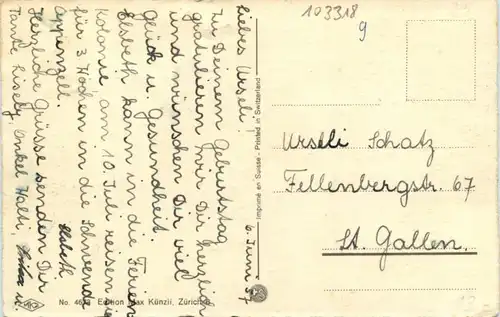 103318
9
6. Juni 57
Liebes Urseli!
Zu Deinem Geburtstag
gratulieren wir Dir herzlich
und wünschen Dir viel
Glück u. Gesundheit.
Elsbeth kann in die Ferien
Kolonie, am 10. Juli reisen sie
für 3 Wochen in die Schwende
Appenzell.
Herzliche Grüsse senden Dir
Tante Lisely, Onkel Walti, u.
Elsbeth
Imprimé en Suisse - Printed in Switzerland
Urseli Schatz
Fellenbergstr. 67
St. Gallen.
Edition Max Künzli, Zürich